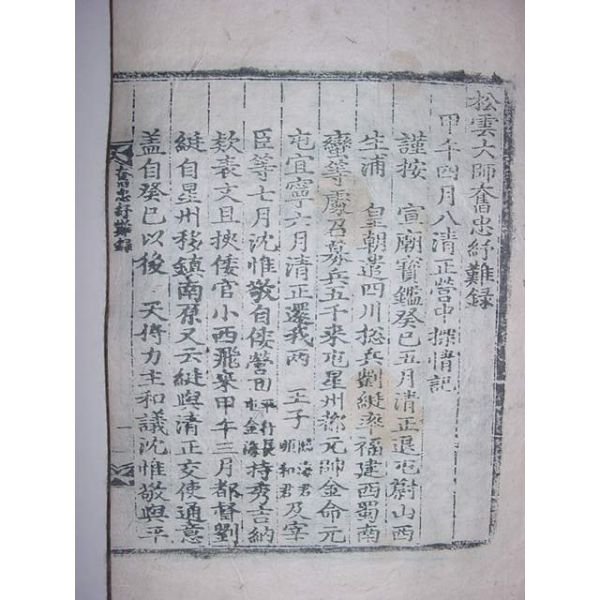 松雲大師奮忠紓難録
甲午四月入清正營中探情記
謹按 宣廟寶鑑癸巳五月清正退屯蔚山西
生浦 皇朝遣四川摠兵劉綎率福建西蜀南
蠻等處召募兵五千來屯星州 元帥金命元
屯宜寧六月清正還我兩 王子 臨海君 順和君 及宰
臣等七月沈惟敬自倭營回 平行長 屯金海 持秀吉納
款表文且挾倭官小西飛來甲午三月都督劉
綎自星州移鎮南原又云綎與清正交使通意
盖自癸巳以後 天將力主和議沈惟敬與平
奮忠紓難録
一